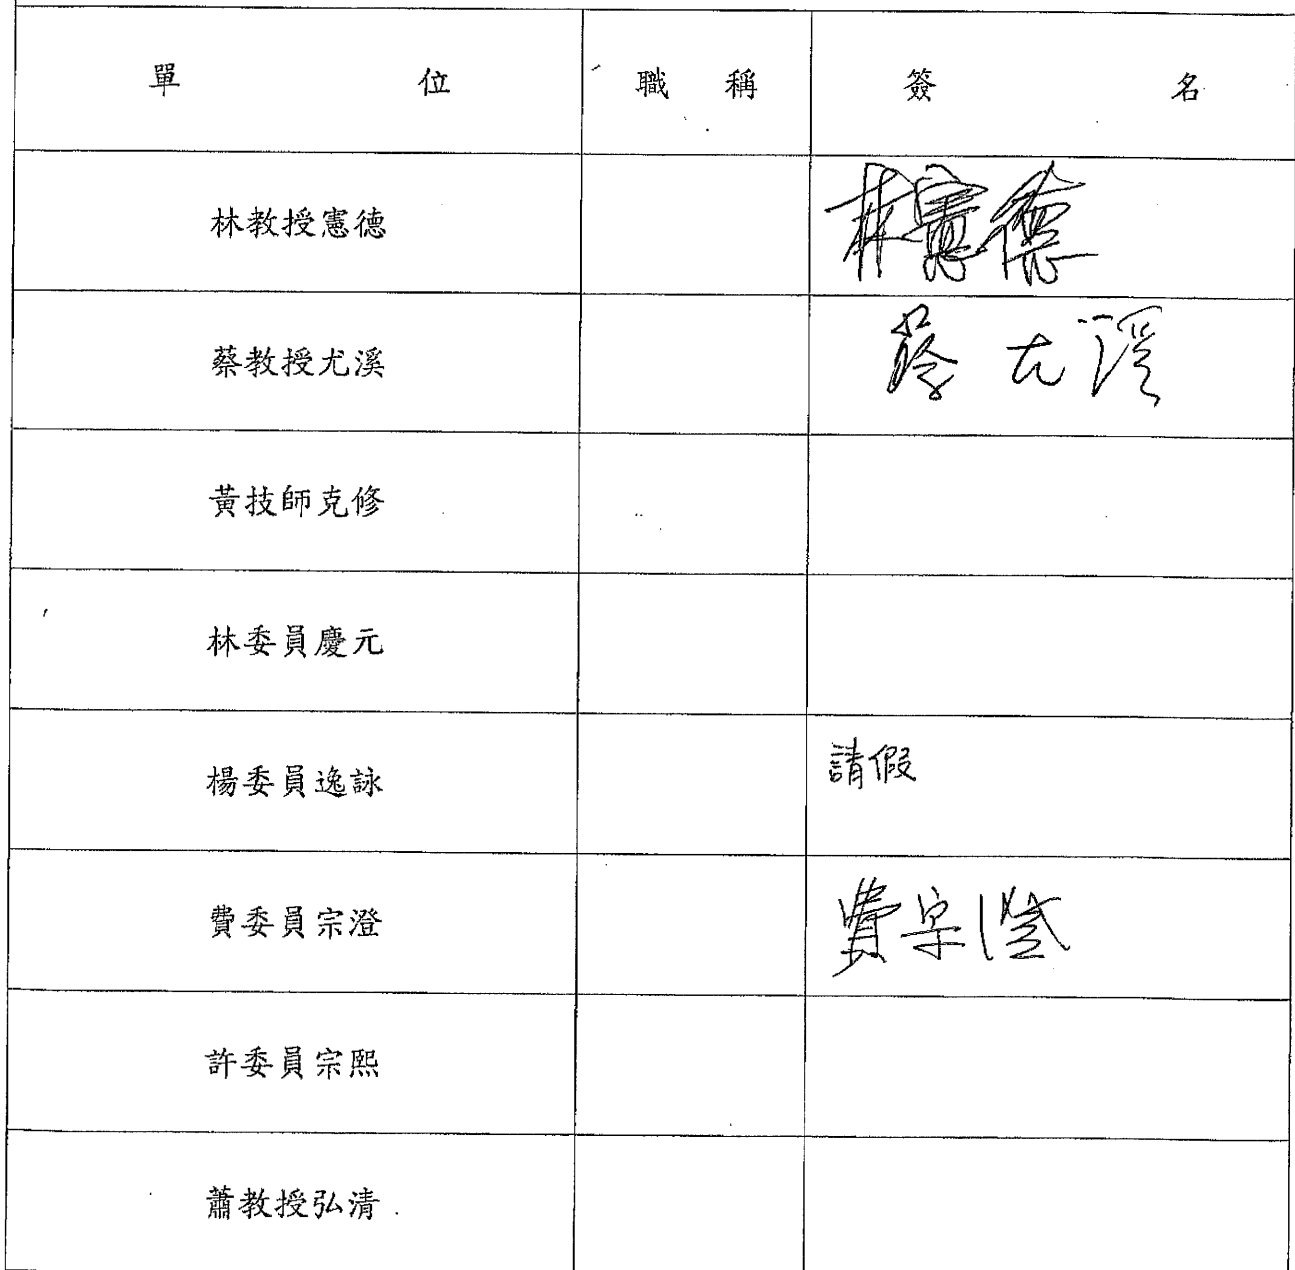 單 位 職 稱 簽 名
林教授憲德 林憲德
蔡教授尤溪 蔡尤溪
黃技師克修
林委員慶元
楊委員逸詠 請假
費委員宗澄 費宗澄
許委員宗熙
蕭教授弘清